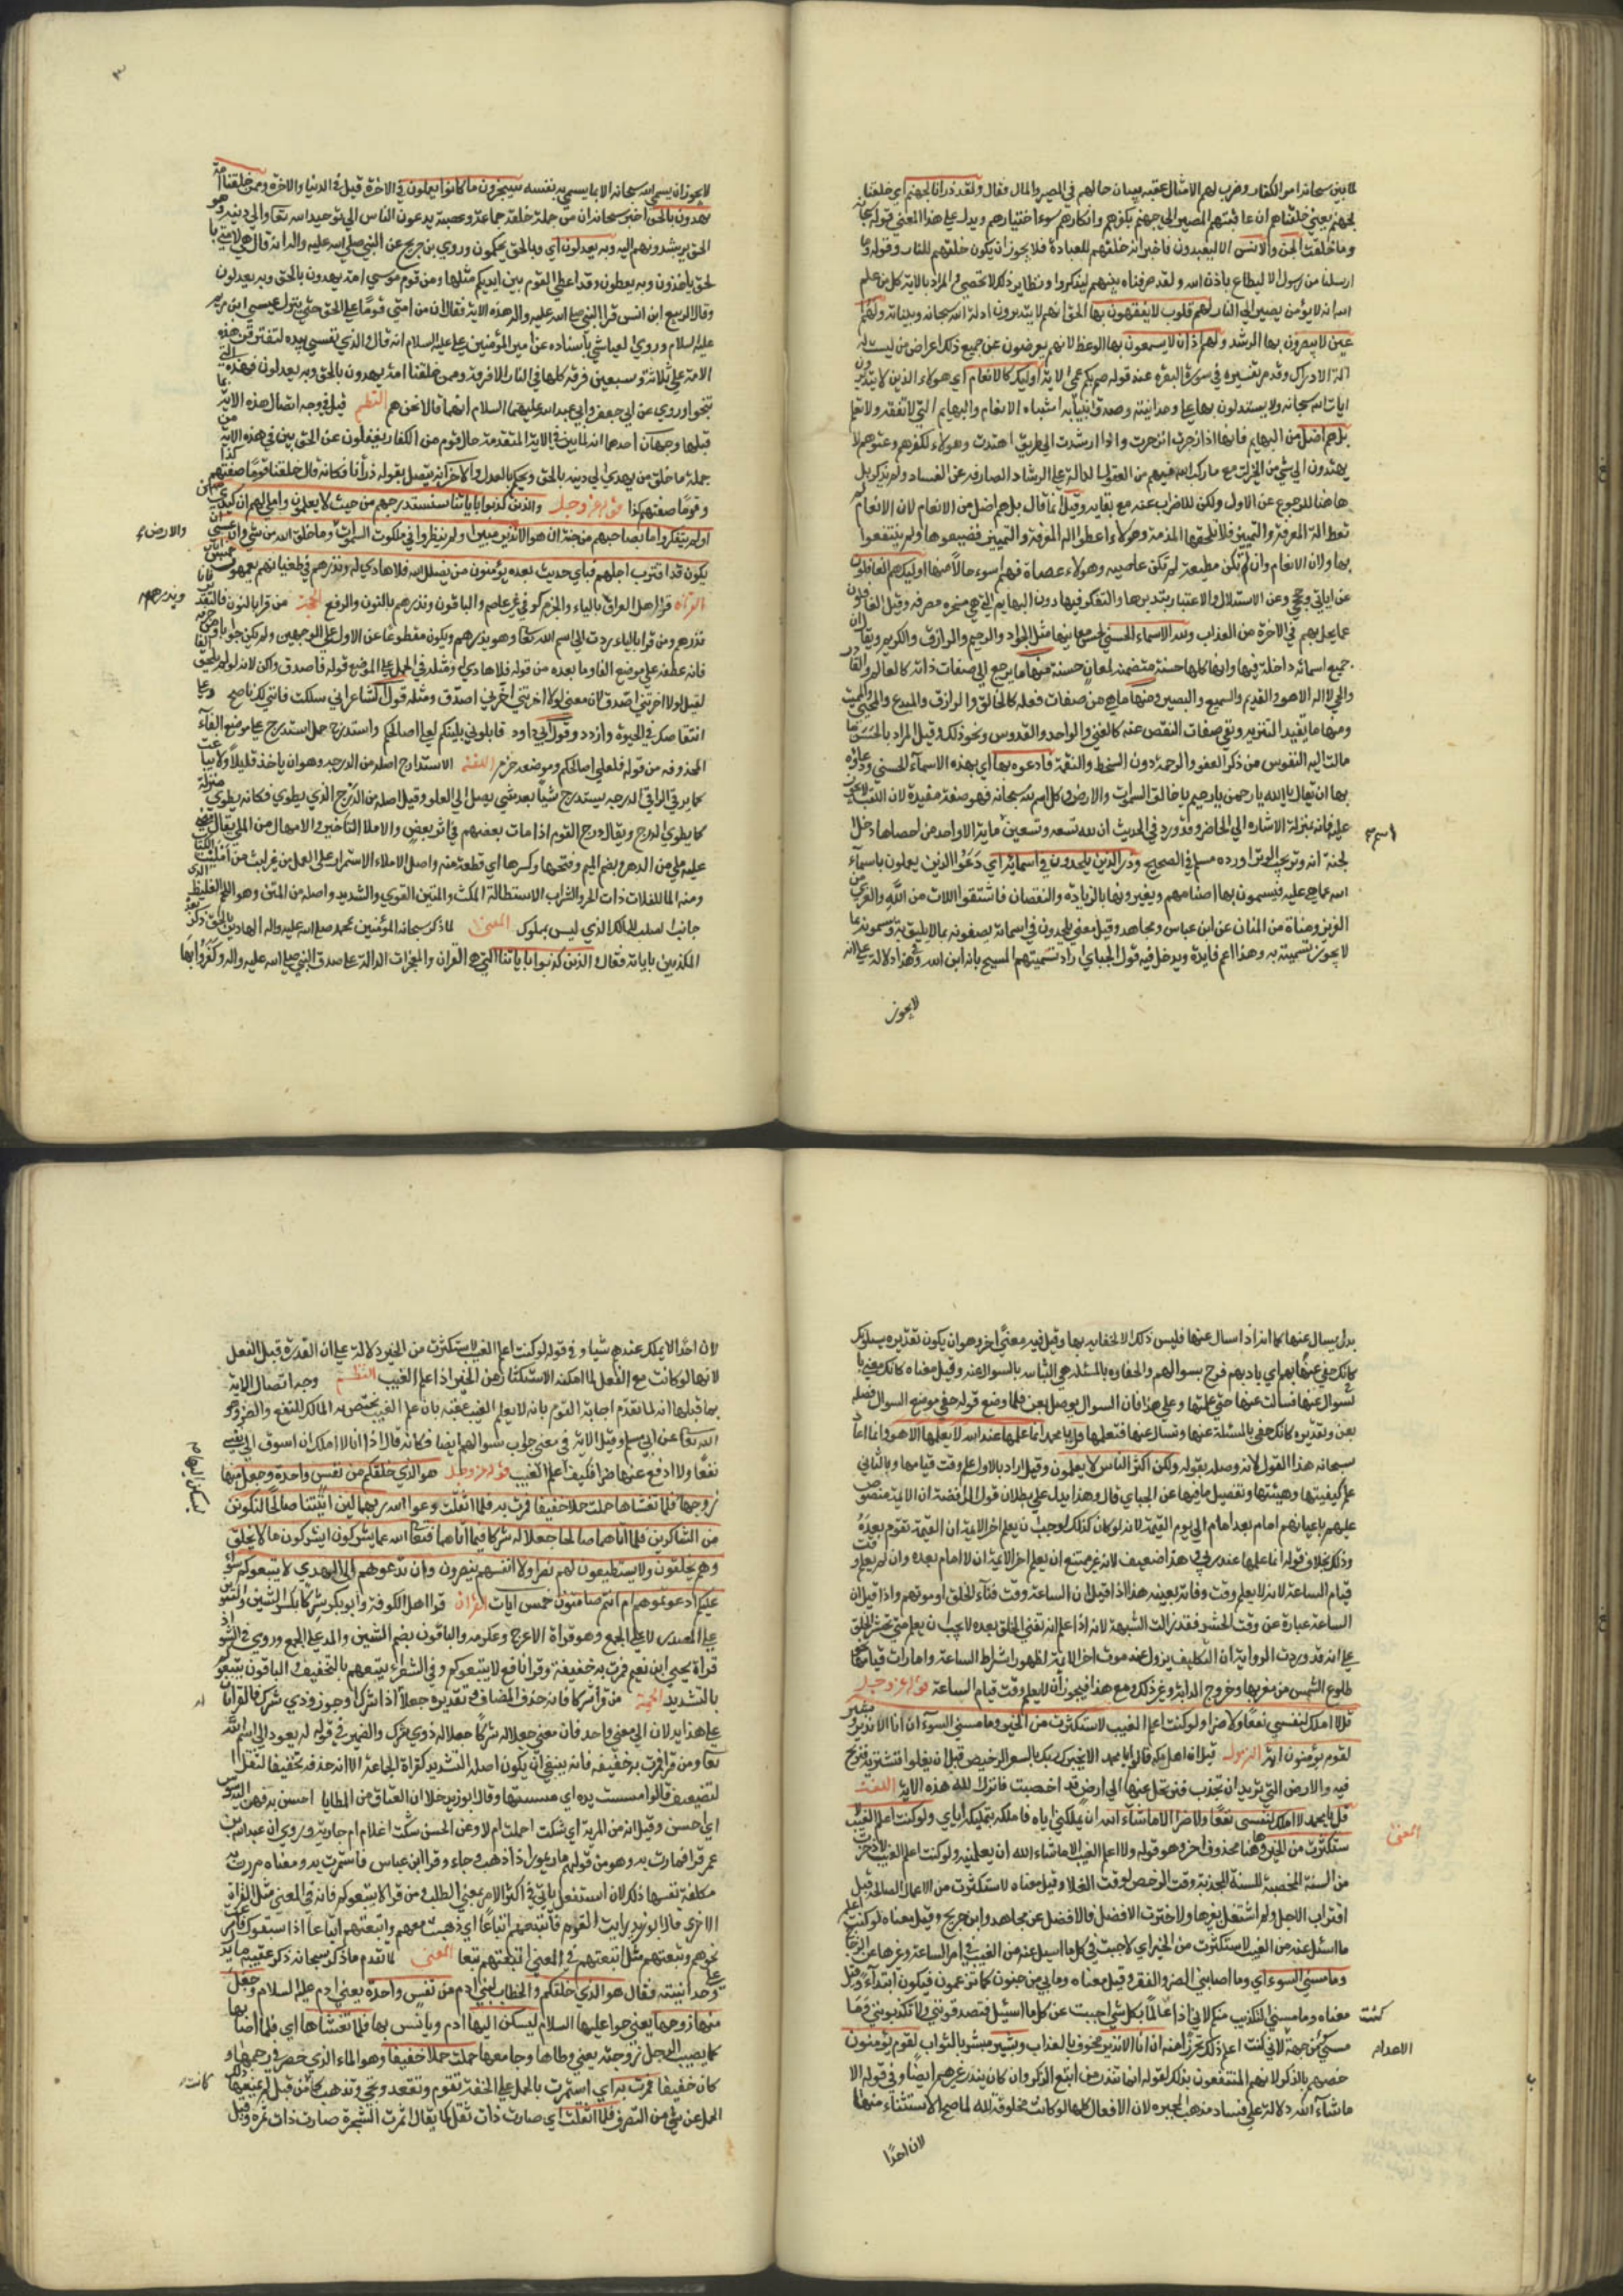 لما بين سبحانه امر الكفار وضرب لهم الامثال عقبه ببيان حالهم في المصير والمال فقال ولقد ذرأنا لجهنم اي خلقنا
لجهنم يعني خلقناهم ان عاقبتهم المصير الي جهنم بكفرهم وانكارهم وسوء اختيارهم ويدل علي هذا المعني قوله سبحانه
وما خلقت الجن والانس الا ليعبدون فاخبر انه خلقهم للعبادة فلا يجوز ان يكون خلقهم للنار وقوله وما
ارسلنا من رسول الا ليطاع باذن الله ولقد صرفناه بينهم ليذكروا ونظاير ذلك لا تحصي والمراد بالاية كل من علم
الله انه لا يؤمن يصير الي النار لهم قلوب لا يفقهون بها الحق لانهم لا يتدبرون ادلة الله سبحانه وبيناته ولهم
اعين لا يبصرون بها الرشد ولهم اذان لا يسمعون بها الوعظ لانهم يعرضون عن جميع ذلك اعراض من ليست له
الة الادراك وقد مر تفسيره في سورة البقرة عند قوله صم بكم عمي الاية اوليك كالانعام اي هولاء الذين لا يتدبرون
ايات الله سبحانه ولا يستدلون بها علي وحدانيته وصدق انبيائه اشباه الانعام والبهايم التي لا تفقه ولا تعلم
بل هم اضل من البهايم فانها اذا زجرت انزجرت واذا ارشدت الي طريق اهتدت وهولاء لكفرهم وعتوهم لا
يهتدون الي شي من الخيرات مع ما ركب الله فيهم من العقول الدالة علي الرشاد الصارفه عن الفساد ولم يذكر بل
هاهنا للرجوع عن الاول ولكن للاضراب عنه مع بقايه وقيل انما قال بل هم اضل من الانعام لان الانعام لم
تعط الة المعرفة والتمييز فلا تلحقها المذمة وهولاء اعطوا الة المعرفة والتمييز فضيعوها ولم ينتفعوا
بها ولان الانعام وان لم تكن مطيعة لم تكن عاصيه وهولاء عصاة فهم اسوء حالا منها اوليك هم الغافلون
عن اياتي وحججي وعن الاستدلال والاعتبار بتدبرها والتفكر فيها دون البهايم التي هي مسخره مصرفه وقيل الغافلون
عما يحل بهم في الاخرة من العذاب ولله الاسماء الحسني لحسن معانيها مثل الجواد والرحيم والرازق والكريم ويقال ان
جميع اسمائه داخلة فيها وانها كلها حسنة متضمنه لمعان حسنة فمنها ما يرجع الي صفات ذاته كالعالم والقادر
والحي والاله والقديم والسميع والبصير ومنها ما هي من صفات فعله كالخالق والرازق والمبدع والمحيي والمميت
ومنها ما يفيد التنزيه ونفي صفات النقص عنه كالغني والواحد والقدوس ونحو ذلك وقيل المراد بالحسني ما
مالت اليه النفوس من ذكر العفو والرحمة دون السخط والنقمة فادعوه بها اي بهذه الاسماء الحسني ودعاؤه
بها ان يقال يا الله يا رحمن يا رحيم يا خالق السموات والارض وكل اسم لله سبحانه فهو صفة مفيدة لان اللقب لا يجوز
عليه فانه بمنزلة الاشاره الي الحاضر وقد ورد في الحديث ان لله تسعه وتسعين ماية الا واحد من احصاها دخل
اسما
الجنة انه وتر يحب الوتر اورده مسلم في الصحيح وذر الذين يلحدون في اسمايه اي دعوا الذين يعدلون باسماء
الله عما هي عليه فيسمون بها اصنامهم ويغيرونها بالزيادة والنقصان فاشتقوا اللات من الله والعزي من
العزيز ومناة من المنان عن ابن عباس ومجاهد وقيل معني يلحدون في اسمائه يصفونه بما لا يليق به ويسمونه بما
لا يجوز تسميته به وهذا اعم فايدة ويدخل فيه قول الجبائي اراد تسميتهم المسيح بانه ابن الله وفي هذا دلالة علي انه
لا يجوز
٣
لا يجوز ان يسمي الله سبحانه الا بما يسمي به نفسه سيجزون ما كانوا يعملون في الاخرة وقيل في الدنيا والاخرة وممن خلقنا امة
يهدون بالحق اخبر سبحانه ان من جملة خلقه جماعة وعصبة يدعون الناس الي توحيد الله تعالي والي دينه وهو
الحق يرشدونهم اليه وبه يعدلون اي وبالحق يحكمون وروي ابن جريج عن النبي صلي الله عليه واله انه قال هي لامتي با
لحق ياخذون وبه يعطون وقد اعطي القوم بين ايديكم مثلها ومن قوم موسي امة يهدون بالحق وبه يعدلون
وقال الربيع ابن انس قرا النبي صلي الله عليه واله هذه الاية فقال ان من امتي قوما علي الحق حتي ينزل عيسي ابن مريم
عليه السلام وروي العياشي باسناده عن امير المؤمنين علي عليه السلام انه قال والذي نفسي بيده لتفترقن هذه
الامة علي ثلاثة وسبعين فرقة كلها في النار الا فرقة وممن خلقنا امة يهدون بالحق وبه يعدلون فهذه التي
تنجوا وروي عن ابي جعفر وابي عبد الله عليهما السلام انهما قالا نحن هم النظم قيل في وجه اتصال هذه الاية بما
قبلها وجهان احدهما انه لما بين في الاية المتقدمة حال قوم من الكفار يغفلون عن الحق بين في هذه الاية من
جملة ما خلق من يهدي الي دينه بالحق ويحكم بالعدل والاخر انه يتصل بقوله ذرأنا فكانه قال خلقنا قوما صفتهم كذا
وقوما صفتهم كذا قوله عز وجل والذين كذبوا باياتنا سنستدرجهم من حيث لا يعلمون واملي لهم ان كيدي متين
اولم يتفكروا ما بصاحبهم من جنة ان هو الا نذير مبين اولم ينظروا في ملكوت السموات وما خلق الله من شي وان عسي ان
والارض
يكون قد اقترب اجلهم فباي حديث بعده يؤمنون من يضلل الله فلا هادي له ونذرهم في طغيانهم يعمهون خمس ايات
القراة قرا اهل العراق بالياء والجزم كوفي غير عاصم والباقون ونذرهم بالنون والرفع الحجة من قرا بالنون فالتقدير انا
ويذرهم
نذرهم ومن قرا بالياء رده الي اسم الله تعالي وهو يذرهم ويكون مقطوعا عن الاول علي الوجهين ولم يكن جوابا ومن جزم
فانه عطفه علي موضع الفا وما بعده من قوله فلا هادي له ومثله في الحمل علي الموضع قوله فاصدق واكن لانه لو لم يلحق الفا
لقيل لولا اخرتني اصدق لان معني لولا اخرتني اخرني اصدق ومثله قول الشاعر اني سلكت فانني لك ناصح وعلي
انتقاصك في الحيوة وازدد وقول ابي داود فابلوني بليتكم لعلي اصالحكم واستدرج حمل استدرج علي موضع الفاء
المحذوفه من قوله فلعلي اصالحكم وموضعه جزم اللغة الاستدراج اصله من الدرجه وهو ان ياخذ قليلا قليلا
كما يرقي الراقي الدرجه يستدرج شيا بعد شي يصل الي العلو وقيل اصله من الدرج الذي يطوي فكانه يطوي منزلة
كما يطوي الدرج ويقال درج القوم اذا مات بعضهم في اثر بعض والاملا التاخير والامهال من الملي يقال مضي
عليه ملي من الدهر بضم الميم وفتحها وكسرها اي قطعة منه واصل الاملاء الاستمرار علي العمل من غير لبث من امليت الكتاب
ومنه الملا للفلات ذات الحر والشراب الاستطالة المكث والمتين القوي والشديد واصله من المتن وهو اللحم الغليظ الذي
جانب الصلب الذي ليس بملوك المعني لما ذكر سبحانه المؤمنين بمحمد صلي الله عليه واله الهادين بالحق ذكر بعده
المكذبين باياته فقال والذين كذبوا باياتنا التي هي القران والمعجزات الدالة علي صدق النبي صلي الله عليه واله وكفروا بها
بدل يسال عنها كما انه اذا سال عنها فليس ذلك الا لحفايه بها وقيل فيه معني اخر وهو ان يكون تقديره يسلونك
كانك حفي عنها بهم اي بار بهم فرح بسوالهم والحفاوه بالمسئلة هي البشاشه بالسوال عنه وقيل معناه كانك معني با
لسوال عنها فسالت عنها حتي علمتها وعلي هذا فان السوال يوصل بعن فلما وضع قوله حفي موضع السوال وصله
بعن وتقديره كانك حفي بالمسئلة عنها وتسال عنها فتعلمها قل يا محمد انما علمها عند الله لا يعلمها الا هو وانما اعاد
سبحانه هذا القول لانه وصله بقوله ولكن اكثر الناس لا يعلمون وقيل اراد بالاول علم وقت قيامها وبالثاني
علم كيفيتها وهيئتها وتفصيل ما فيها عن الجبائي قال وهذا يدل علي بطلان قول الرافضة ان الايمة منصوص
عليهم باعيانهم امام بعد امام الي يوم القيمة لانه لو كان كذلك لوجب ان يعلم اخر الايمة ان القيمة تقوم بعده
وذلك خلاف قوله انما علمها عند ربي في هذا ضعيف لانه غير ممتنع ان يعلم اخر الايمة ان لا امام بعده وان لم يعلم وقت
قيام الساعة لانه لا يعلم وقت وفاته بعينه هذا اذا قيل ان الساعة وقت فناء الخلق او موتهم واذا قيل ان
الساعة عبارة عن وقت الحشر فقد زالت الشبهة لانه اذا علم انه تفني الخلق بعده لا يجب ان يعلم متي تحشر الخلق
علي انه قد وردت الرواية ان التكليف يزول عند موت اخر الايمة لظهور اشراط الساعة وامارات قيامها نحو
طلوع الشمس من مغربها وخروج الدابة وغير ذلك ومع هذا فيجوز ان لا يعلم وقت قيام الساعة قوله عز وجل
قل لا املك لنفسي نفعا ولا ضرا ولو كنت اعلم الغيب لاستكثرت من الخير وما مسني السوء ان انا الا نذير وبشير
لقوم يؤمنون اية النزول قيل ان اهل مكة قالوا يا محمد الا يخبرك ربك بالسعر الرخيص قبل ان يغلوا فتشتريه فتربح
فيه والارض التي تريد ان تجدب فترتحل عنها الي ارض قد اخصبت فانزل الله هذه الاية اللغة
قل يا محمد لا املك لنفسي نفعا ولا ضرا الا ما شاء الله ان يملكني اياه فاملكه بتمليكه اياي ولو كنت اعلم الغيب لا
المعني
ستكثرت من الخير وهاهنا محذوف اخر وهو قوله ولا اعلم الغيب الا ما شاء الله ان يعلمنيه ولو كنت اعلم الغيب لادخرت
من السنة المخصبة للسنة المجدبة ووقت الرخص لوقت الغلا وقيل معناه لاستكثرت من الاعمال الصالحه قبل
اقتراب الاجل ولم اشتغل بغيرها ولاخترت الافضل فالافضل عن مجاهد وابن جريج وقيل معناه لو كنت اعلم
ما اسئل عنه من الغيب لاستكثرت من الخير اي لاجبت في كل ما اسيل عنه من الغيب في امر الساعة وغيرها عن الزجاج
وما مسني السوء اي وما اصابني الضر والفقر وقيل معناه وما بي من جنون كما تزعمون فيكون ابتداء وقيل
معناه وما مسني التكذيب منكم لاني اذا عالما بكل شي اجبت عن كل ما اسئل فتصدقونني ولا تكذبونني وما
كنت
مسني من جهة لاني كنت اعلم ذلك تحرزا منه ان انا الا نذير مخوف بالعذاب وبشير مبشر بالثواب لقوم يؤمنون
الاعداء
خصهم بالذكر لانهم المنتفعون بذلك لقوله انما تنذر من اتبع الذكر وان كان ينذر غيرهم ايضا وفي قوله الا
ما شاء الله دلالة علي فساد مذهب المجبره لان الافعال كلها لو كانت مخلوقة لله لما صح الاستثناء منها
لان احدا
لان احدا لا يملك عندهم شيا وفي قوله لو كنت اعلم الغيب لاستكثرت من الخير دلالة علي ان القدرة قبل الفعل
لانها لو كانت مع الفعل لما امكنه الاستكثار من الخير اذا علم الغيب النظم وجه اتصال الاية
بما قبلها انه لما تقدم اجابة القوم بانه لا يعلم الغيب عقبه بان علم الغيب يختص به المالك للنفع والضر وهو
الله تعالي عن ابي مسلم وقيل الاية في معني جواب سوالهم ايضا فكانه قال اذا انا لا املك ان اسوق الي نفسي
نفعا ولا ادفع عنها ضرا فكيف اعلم الغيب قوله عز وجل هو الذي خلقكم من نفس واحدة وجعل منها
زوجها فلما تغشاها حملت حملا خفيفا فمرت به فلما اثقلت دعوا الله ربهما لئن اتيتنا صالحا لنكونن
ليسكن اليها
من الشاكرين فلما اتاهما صالحا جعلا له شركا فيما اتاهما فتعالي الله عما يشركون ايشركون ما لا يخلق شيا
وهم يخلقون ولا يستطيعون لهم نصرا ولا انفسهم ينصرون وان تدعوهم الي الهدي لا يتبعوكم سواء
عليكم ادعوتموهم ام انتم صامتون خمس ايات القراة قرا اهل الكوفة وابو بكر شركا بكسر الشين والتنوين
علي المصدر لا علي الجمع وهو قراة الاعرج وعكرمه والباقون بضم الشين والمد علي الجمع وروي في الشواذ
قراة يحيي ابن يعمر فمرت به خفيفة وقرا نافع لا يتبعوكم وفي الشعراء يتبعهم بالتخفيف والباقون يتبعوكم
بالتشديد الحجة من قرا شركا فانه حذف المضاف وتقديره جعلا له ذا شرك او جوز ذوي شرك فالقراتان
علي هذا يدلان الي معني واحد فان معني جعلا له شركا جعلا له ذوي شرك والضمير في قوله له يعود الي اسم الله
تعالي ومن قرا فمرت به خفيفة فانه ينبغي ان يكون اصله التشديد كقراة الجماعة الا انه حذفه تخفيفا لثقل
التضعيف قالوا مست يده اي مسستها وقال ابو زبيد خلا ان العتاق من المطايا احسن به فهن اليه شوس
اي احسسن وقيل انه من المرية اي شكت احملت ام لا وعن الحسن شكت اغلام ام جارية وروي ان عبد الله بن
عمر قرا فمارت به وهو من قولهم مار يمور اذا ذهب وجاء وقرا ابن عباس فاستمرت به ومعناه مرت به
مكلفة نفسها ذلك لان استفعل ياتي في اكثر الامر بمعني الطلب ومن قرا لا يتبعوكم فانه في المعني مثل القراة
الاخري قال ابو زيد رايت القوم فاتبعتهم اتباعا اي ذهبت معهم واتبعتهم اتباعا اذا سبقوك فاسرعت
نحوهم وتبعتهم مثل اتبعتهم في المعني اتبعتهم تبعا المعني لما تقدم ما ذكر سبحانه ذكر عقيبه ما يدل علي
وحدانيته فقال هو الذي خلقكم والخطاب لبني ادم من نفس واحدة يعني ادم عليه السلام وجعل
منها زوجها يعني حوا عليها السلام ليسكن اليها ادم ويانس بها فلما تغشاها اي فلما اصابها
كما يصيب الرجل زوجته يعني وطاها وجامعها حملت حملا خفيفا وهو الماء الذي حصل في رحمها و
كان خفيفا فمرت به اي استمرت بالحمل علي الخفة تقوم وتقعد وتجي وتذهب كما من قبل لم يمنعها ذلك
كانت
الحمل عن شي من التصرف فلما اثقلت اي صارت ذات ثقل كما يقال اثمرت الشجرة صارت ذات ثمرة وقيل